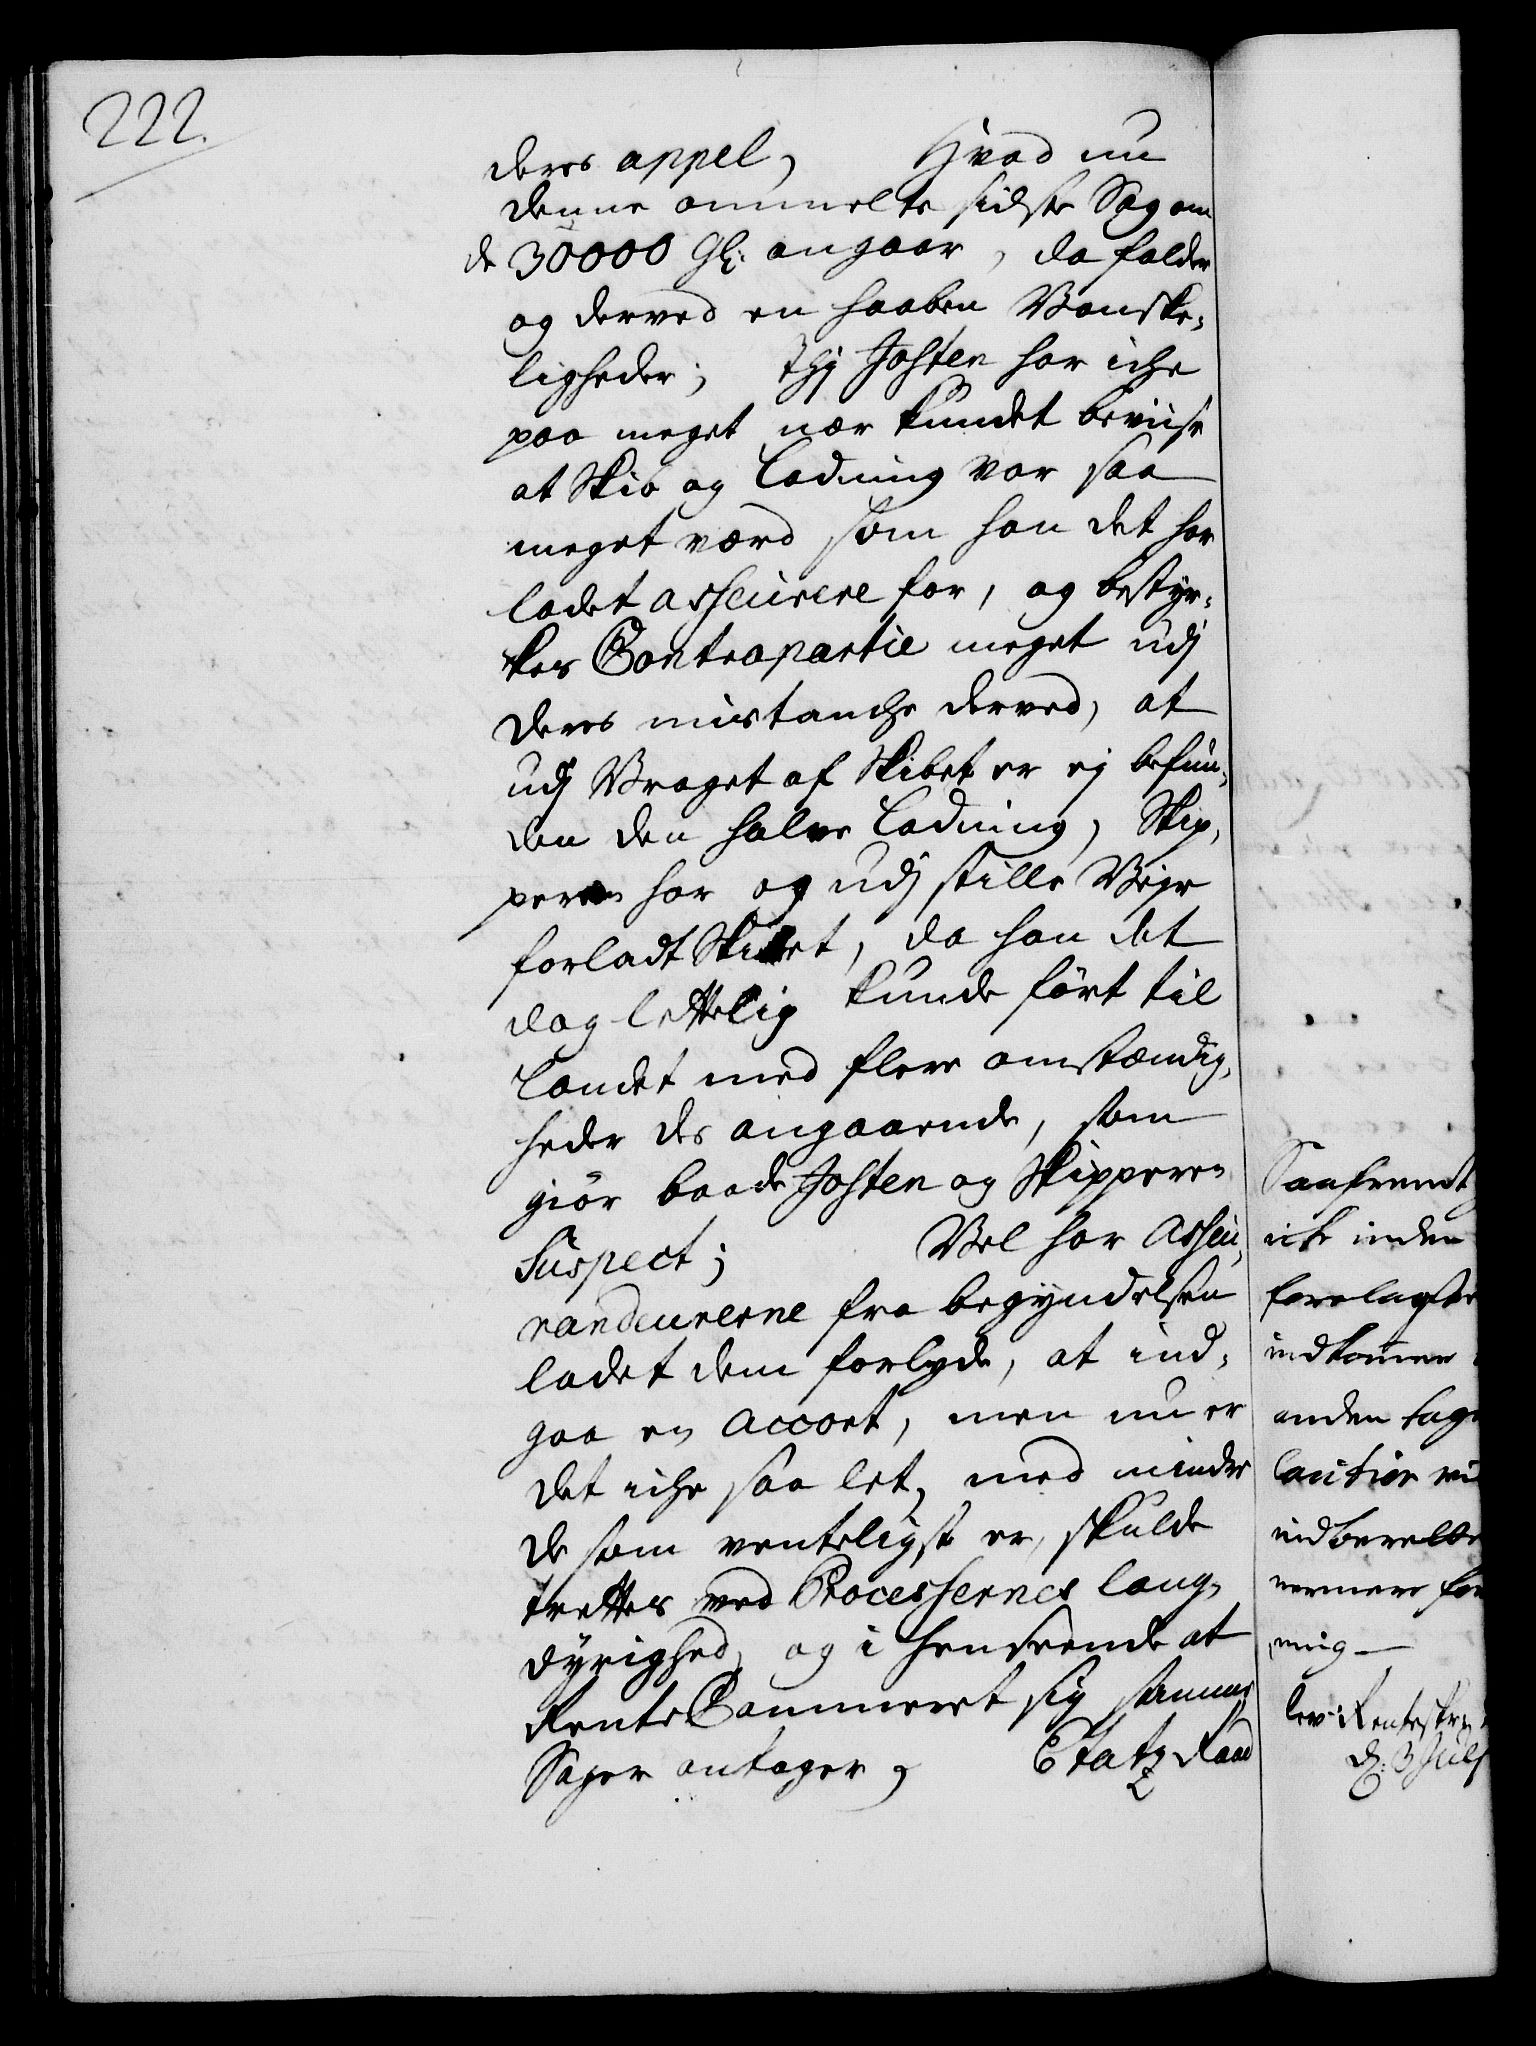 222.
deres appel, Hvad nu
denne ommelte sidste Sag om
de 30000 Gl: angaar, da falder
og derved en haaben Vanske-
ligheder; thj Josten har iche
paa meget nær kundet beviise
at Skib og Ladning var saa
meget værd som han det har
ladet asseurere for, og bestyr-
kes Contrapartie meget udj
deres mistanche derved, at
udj Vraget af Skibet er ej befun-
den den halve Ladning, Skip-
peren har og udj stille Vejr
forladt Skibet, da han det
dog lettelig kunde ført til
Landet med flere omstændig-
heder des angaaende, som
giør baade Josten og Skipperen
Suspect; Vel har Asseu-
randeurerne fra begyndelsen
ladet dem forlyde, at ind-
gaa en Accort, men nu er
det iche saa let, med minder
de som venteligst er, skulde
trættes ved Processernes lang-
dyrighed, og i henseende at
Rente Cammeret sig samme
Sager antager, Etatz Raad
Saafremt
icke inden
forelagste
indkommer
anden tage
Caution
indberette
nermere for
ning
lev: Renteskr
d: 3 Julj